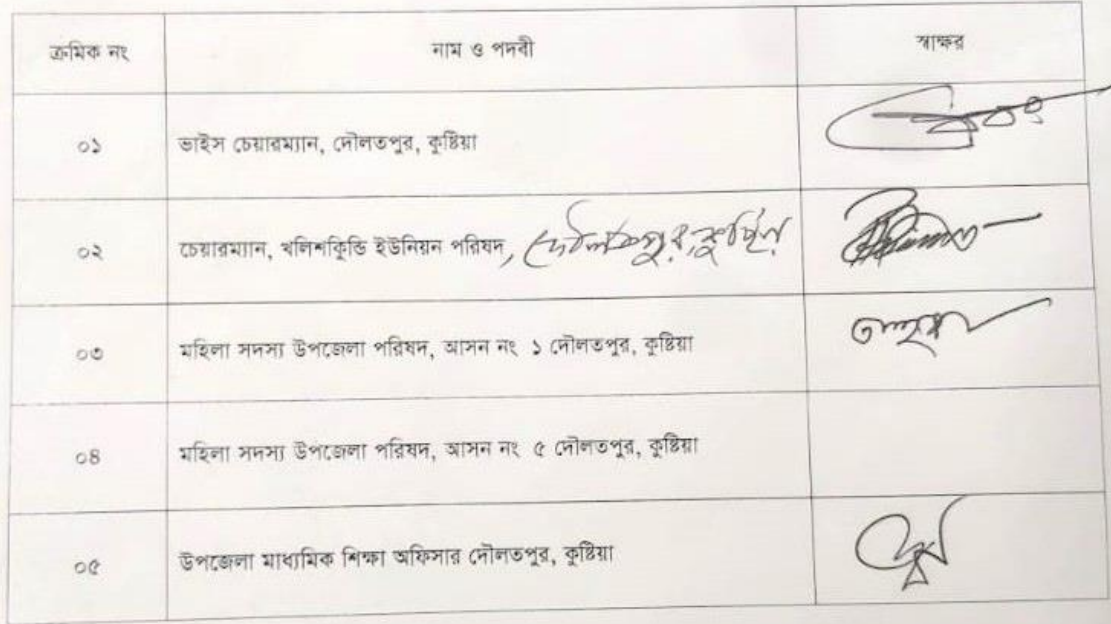 ক্রমিক নং নাম ও পদবী স্বাক্ষর
০১ ভাইস চেয়ারম্যান, দৌলতপুর, কুষ্টিয়া
০২ চেয়ারম্যান, খলিশাকুন্ডি ইউনিয়ন পরিষদ, দৌলতপুর, কুষ্টিয়া
০৩ মহিলা সদস্য উপজেলা পরিষদ, আসন নং ১ দৌলতপুর, কুষ্টিয়া
০৪ মহিলা সদস্য উপজেলা পরিষদ, আসন নং ৫ দৌলতপুর, কুষ্টিয়া
০৫ উপজেলা মাধ্যমিক শিক্ষা অফিসার দৌলতপুর, কুষ্টিয়া